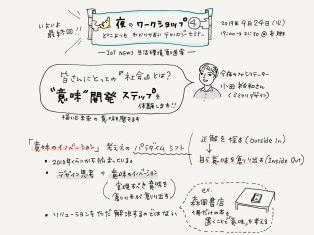 いよいよ
最終回!!
夜のワークショップ④
どこよりもわかりやすいデザインセミナー
IoT NEWS 生活環境創造室
2019年9月24日(火)
19:00〜21:30@
皆さんにとっての"社会"とは?
"意味"開発 ステップを
体験します!!
描いた未来の意味を
今夜のファシリテーター
小田裕和さん
(ミミクリデザイン)
「意味のイノベーション」考え方のパラダイムシフト
正解を探す(Outside in)
自ら意味を創り出す(Inside Out)
・2018年くらいから
・デザイン思考 → 意味のイノベーション
・ソリューションをただ解決するのではない
ex.
森岡書店
1冊だけの本を
置くことで意味を考える